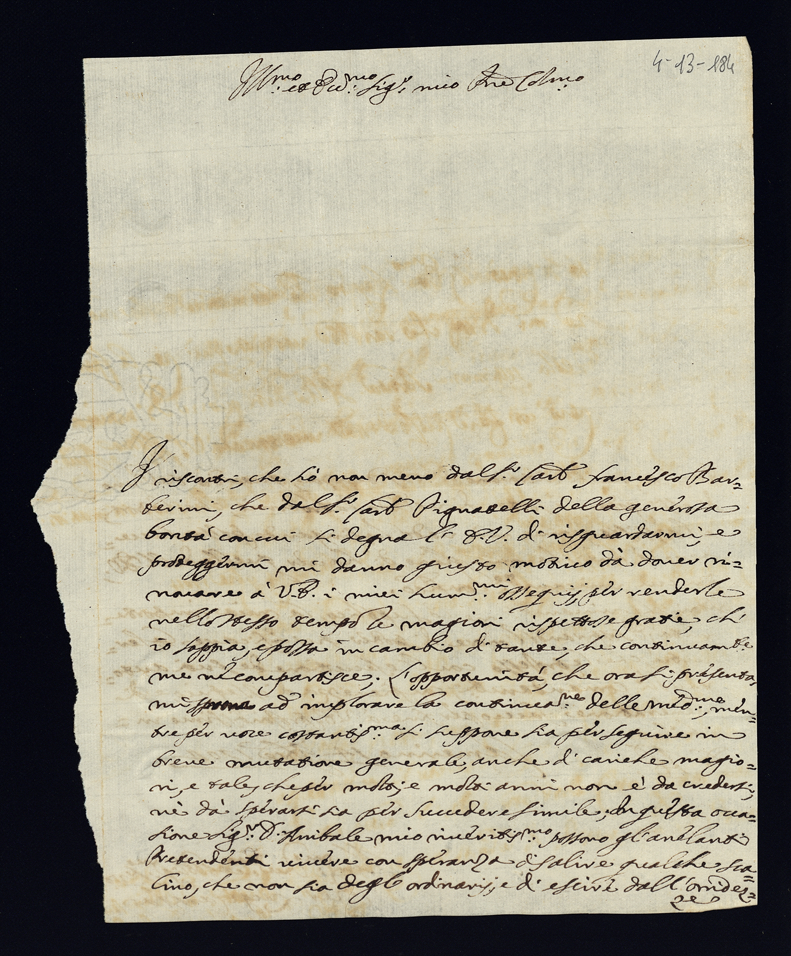 4-13-184
Ill.mo et R.mo Sig.r mio Pne Colmo
I riscontri, che hò non meno dal S.r Card Francesco Bar=
berini, che dal S.r Card Pignatelli della generosa
bontà con cui si degna la S.V. di risguardarmi, e
proteggermi mi danno giusto motivo dà dover ri=
novare à V.S. i miei hum.mi ossequij per renderle
nello stesso tempo le magiori rispettose gratie, ch'
io sappia, e possa in cambio di tante, che continuamte
me ne compartisce. L'opportunità, che ora si presenta,
mi sprona ad implorare la continuaz.ne delle med.me, men=
tre per voce costantis.ma si suppone sia per seguire in
breve mutatione generale, anche di cariche magio=
ri, e tale, che per molti, e molti anni non è da credersi,
nè dà sperarsi sia per succedere simile. In questa occa=
sione Sig.r D. Anibale mio riveritis.mo possono gl'anelanti
Pretendenti vivere con speranza di salire qualche sca=
lino, che non sia degl'ordinarij, e di escire dall'